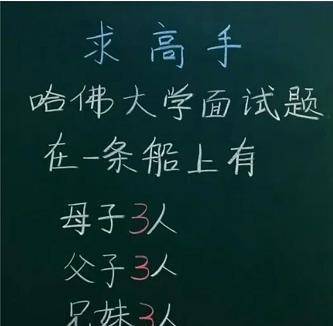 求高手
哈佛大学面试题
在一条船上有
母子3人
父子3人
兄妹3人